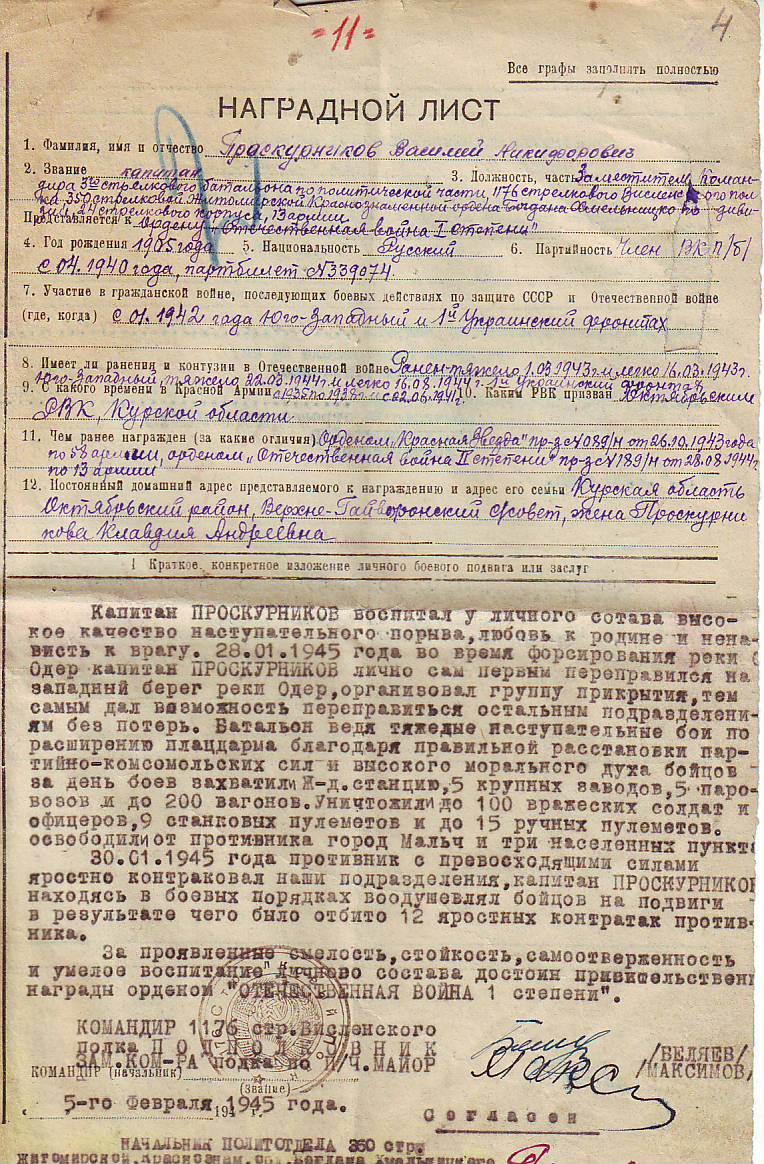 =11=
4
Все графы заполнять полностью
НАГРАДНОЙ ЛИСТ
1. Фамилия, имя и отчество Праскурников Василий Никифорович
2. Звание капитан 3. Должность, часть Заместитель Коман-
дира 3го стрелкового баталъона по политической части, 1176 стрелкового Висленского пол-
ка 350 стрелковой Житомирской Краснознаменной ордена Богдана Хмельницкого диви-
зии, 24 стрелкового корпуса, 13 армии.
Представляется к Ордену „Отечественная война I степени"
4. Год рождения 1905 года 5. Национальность Русский 6. Партийность Член ВКП/б/
с 04.1940 года, партбилет №339074.
7. Участие в гражданской войне, последующих боевых действиях по защите СССР и Отечественной войне
(где, когда) с 01.1942 года Юго-Западный и 1й Украинский фронтах
8. Имеет ли ранения и контузии в Отечественной войне Ранен-тяжело 1.03.1943г. и легко 16.03.1943г.
Юго-Западный, тяжело 22.03.1944г. и легко 16.08.1944г. 1й Украинский фронтах
9. С какого времени в Красной Армии с 1935 по 1938г. и с 02.06.1941г. 10. Каким РВК призван Октябрьским
РВК, Курской области.
11. Чем ранее награжден (за какие отличия) Орденом „Красная Звезда" пр-з №089/н от 26.10.1943 года
по 58 армии, орденом „Отечественная война II степени" пр-з №189/н от 28.08.1944г.
по 13 армии
12. Постоянный домашний адрес представляемого к награждению и адрес его семьи Курская область
Октябрьский район, Верхне-Гайворонский с/совет, жена Проскурни
кова Клавдия Андреевна
1 Краткое, конкретное изложение личного боевого подвига или заслуг
Капитан ПРОСКУРНИКОВ воспитал у личного сотава высо-
кое качество наступательного порыва,любовь к родине и нена-
висть к врагу. 28.01.1945 года во время форсирования реки
Одер капитан ПРОСКУРНИКОВ лично сам первым переправился на
западный берег реки Одер,организовал группу прикрытия,тем
самым дал возможность переправиться остальным подразделени-
ям без потерь. Батальон ведя тяжедые наступательные бои по
расширению плацдарма благодаря правильной расстановки пар-
тийно-комсомольских сил и высокого морального духа бойцов -
за день боев захватили Ж-д.станцию,5 крупных заводов,5 паро-
возов и до 200 вагонов.Уничтожили до 100 вражеских солдат и
офицеров,9 станковых пулеметов и до 15 ручных пулеметов.
освободили от противника город Мальч и три населенных пункта
30.01.1945 года противник с превосходящими силами
яростно контраковал наши подразделения,капитан ПРОСКУРНИКОВ
находясь в боевых порядках воодушевлял бойцов на подвиги
в результате чего было отбито 12 яростных контратак против-
ника.
За проявленные смелость,стойкость,самоотверженность
и умелое воспитание личново состава достоин привительствен
награды орденом "ОТЕЧЕСТВЕННАЯ ВОЙНА 1 степени".
КОМАНДИР 1176 стр.Висленского
полка ПОДПОЛКОВНИК /БЕЛЯЕВ/
ЗАМ.КОМ-РА полка по П/Ч.МАЙОР /МАКСИМОВ/
КОМАНДИР (начальник)
(Звание)
5-го Февраля 194 1945 года.
Согласен
НАЧАЛЬНИК ПОЛИТОТДЕЛА 350 стр.
Житомирской,Краснознам.орд.Богдана Хмельницкого